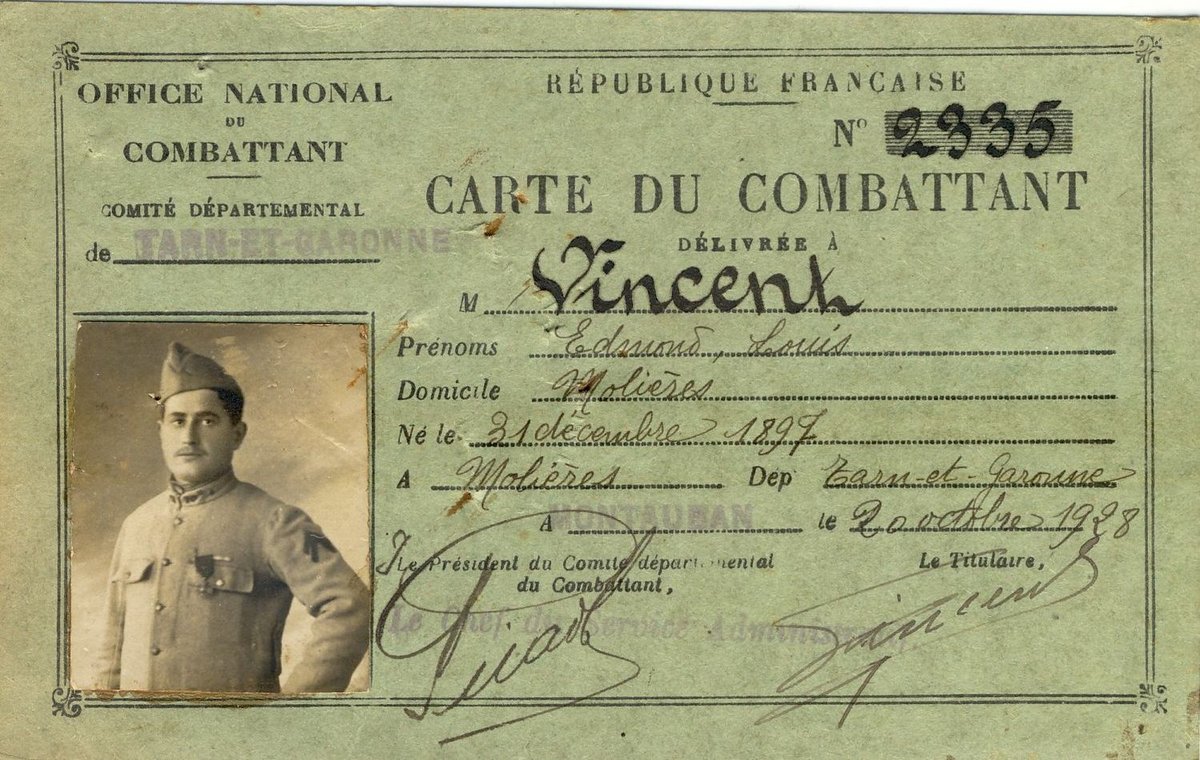 OFFICE NATIONAL
DU
COMBATTANT
COMITÉ DÉPARTEMENTAL
de TARN-ET-GARONNE
RÉPUBLIQUE FRANÇAISE
Nº 2335
CARTE DU COMBATTANT
DÉLIVRÉE À
M Vincent
Prénoms Edmond, Louis
Domicile Molières
Né le 21 décembre 1897
A Molières Dep Tarn-et-Garonne
A MONTAUBAN le 20 octobre 1928
Le Président du Comité départemental
du Combattant,
Le Titulaire,
Le Chef du Service Administratif
Vincent